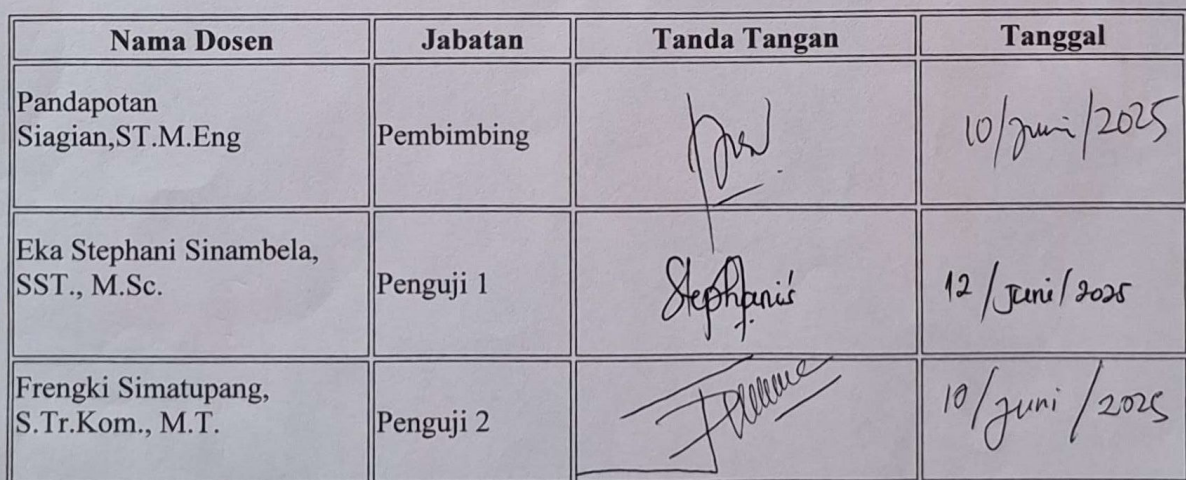 Nama Dosen Jabatan Tanda Tangan Tanggal
Pandapotan
Siagian,ST.M.Eng Pembimbing 10/Juni/2025
Eka Stephani Sinambela,
SST., M.Sc. Penguji 1 Stephanis 12/Juni/2025
Frengki Simatupang,
S.Tr.Kom., M.T. Penguji 2 10/Juni/2025